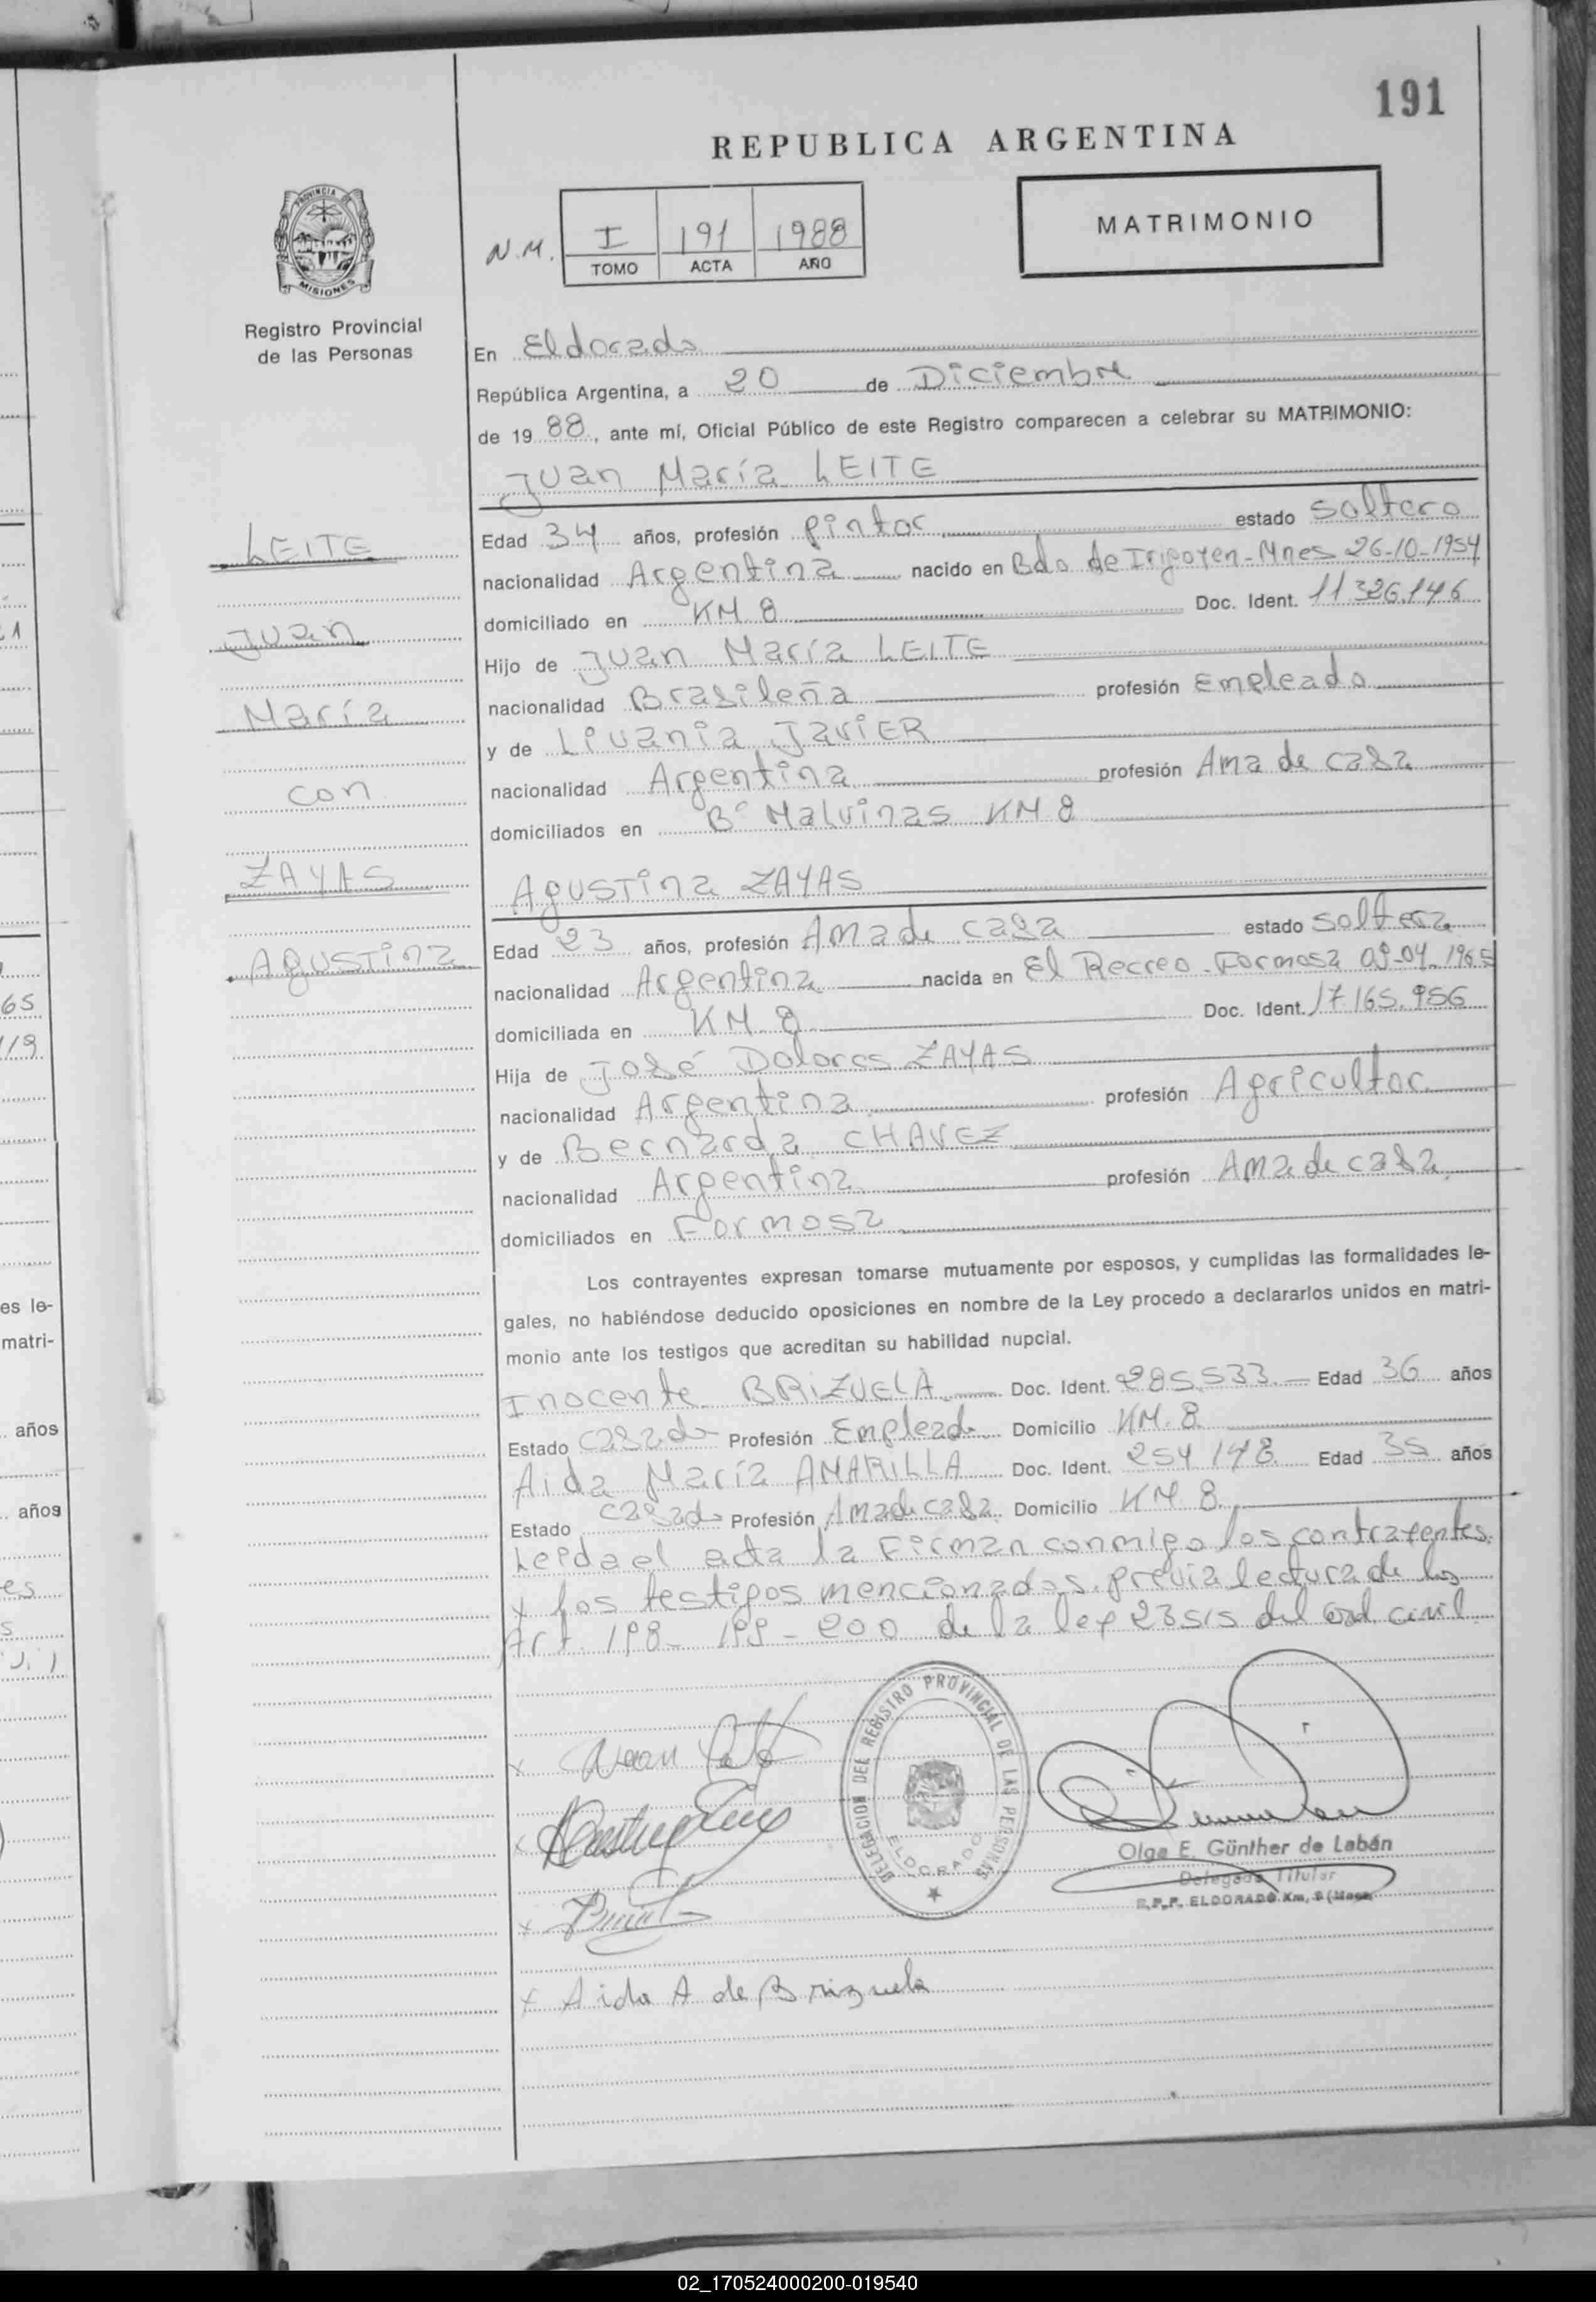 191
REPUBLICA ARGENTINA
PROVINCIA DE
MISIONES
Registro Provincial
de las Personas
N.M.
I 191 1988
TOMO ACTA AÑO
MATRIMONIO
En Eldorado
República Argentina, a 20 de Diciembre
de 19 88, ante mí, Oficial Público de este Registro comparecen a celebrar su MATRIMONIO:
Juan María LEITE
LEITE
Juan
María
con
ZAYAS
Agustina
Edad 34 años, profesión pintor estado soltero
nacionalidad Argentina nacido en Bdo de Irigoyen-Mnes 26-10-1954
domiciliado en KM 8 Doc. Ident. 11.326.146
Hijo de Juan María LEITE
nacionalidad Brasileña profesión Empleado
y de Livania JaviER
nacionalidad Argentina profesión Ama de casa
domiciliados en B° Malvinas KM 8
Agustina ZAYAS
Edad 23 años, profesión Ama de casa estado soltera
nacionalidad Argentina nacida en El Recreo-Formosa 09-04-1965
domiciliada en KM 8 Doc. Ident. 17.165.956
Hija de José Dolores ZAYAS
nacionalidad Argentina profesión Agricultor
y de Bernarda CHAVEZ
nacionalidad Argentina profesión Ama de casa
domiciliados en Formosa
Los contrayentes expresan tomarse mutuamente por esposos, y cumplidas las formalidades le-
gales, no habiéndose deducido oposiciones en nombre de la Ley procedo a declararlos unidos en matri-
monio ante los testigos que acreditan su habilidad nupcial.
Inocente BRIZUELA Doc. Ident. 285.533 Edad 36 años
Estado casado Profesión Empleado Domicilio KM. 8
Aida María AMARILLA Doc. Ident. 254.148 Edad 35 años
Estado casado Profesión Ama de casa Domicilio KM 8.
Leida el acta la Firman conmigo los contrayentes
y los testigos mencionados. previa lectura de los
Art. 198- 199-200 de la ley 23515 del cod. civil.
DELEGACION DEL REGISTRO PROVINCIAL DE LAS PERSONAS
ELDORADO
Olga E. Günther de Labán
Delegada Titular
R.P.P. ELDORADO Km. 8 (Mnes)
x Aida A de Brizuela
65
es le-
matri-
años
años
es
02_170524000200-019540